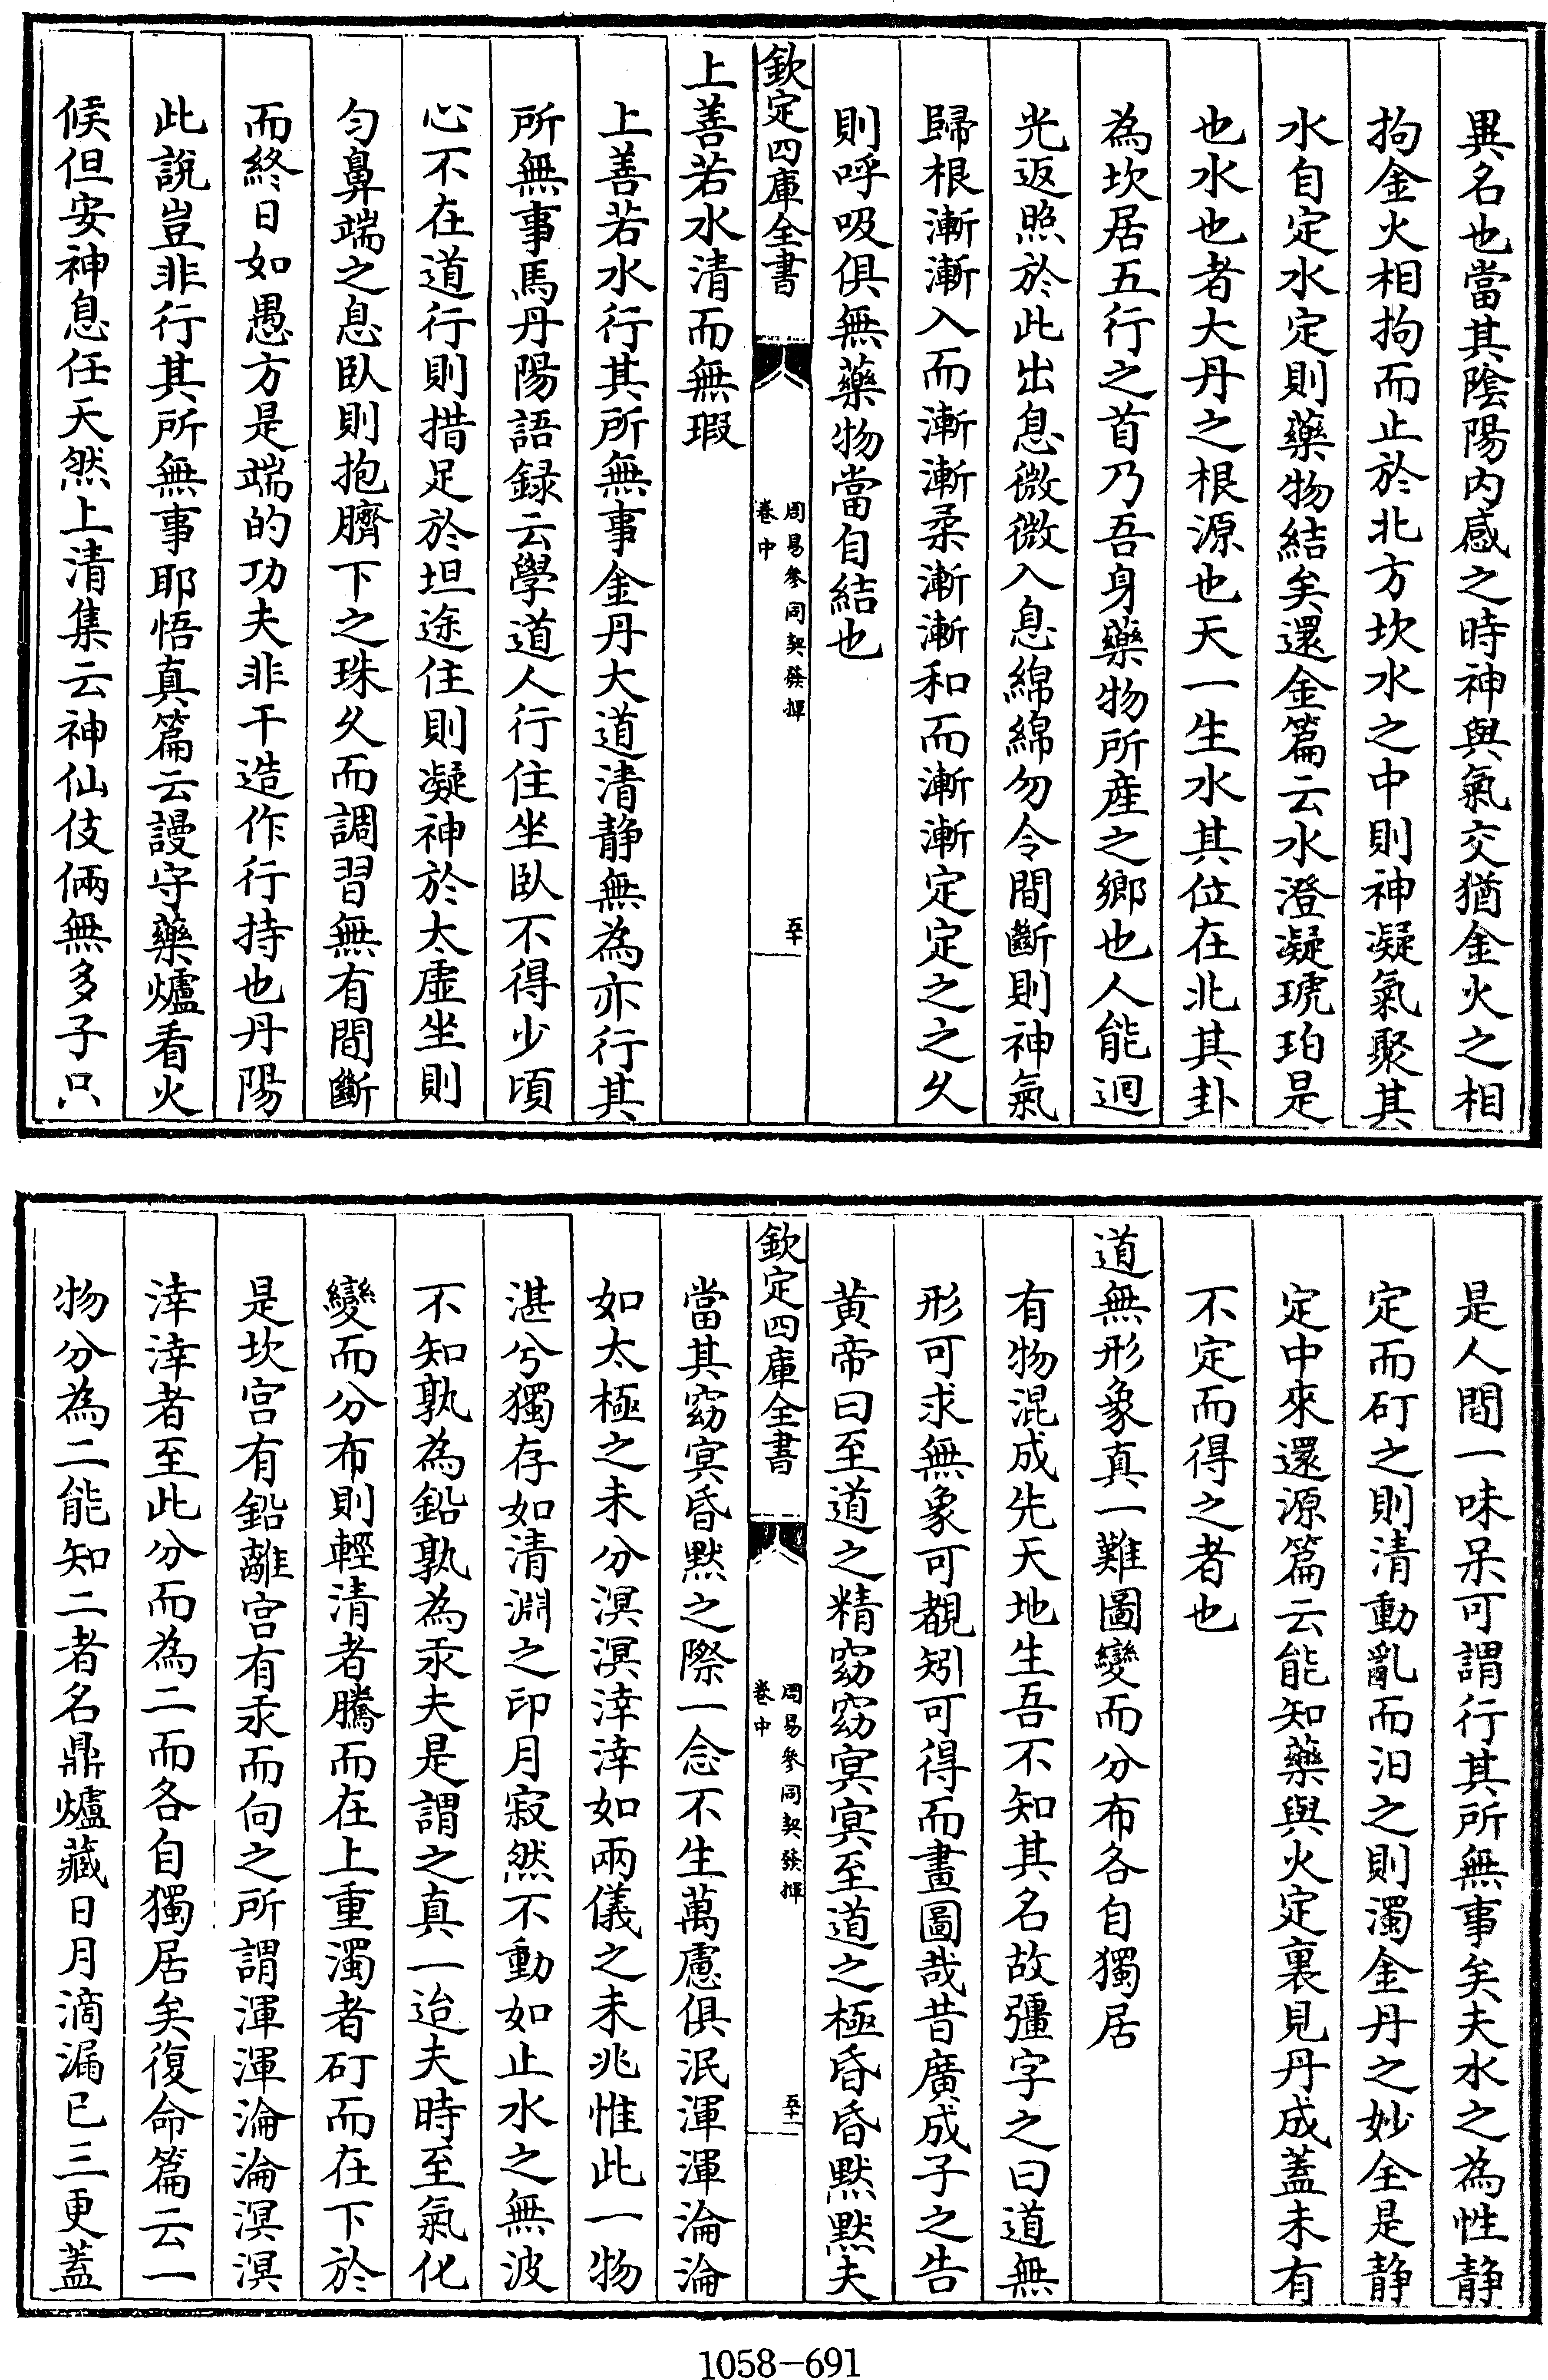 異名也當其陰陽内感之時神與氣交猶金火之相
拘金火相拘而止於北方坎水之中則神凝氣聚其
水自定水定則藥物結矣還金篇云水澄凝琥珀是
也水也者大丹之根源也天一生水其位在北其卦
為坎居五行之首乃吾身藥物所產之鄉也人能迴
光返照於此出息微微入息綿綿勿令間斷則神氣
歸根漸漸入而漸漸柔漸漸和而漸漸定定之之久
則呼吸俱無藥物當自結也
欽定四庫全書
周易參同契發揮
卷中
五十
上善若水清而無瑕
上善若水行其所無事金丹大道清静無為亦行其
所無事馬丹陽語録云學道人行住坐臥不得少頃
心不在道行則措足於坦途住則凝神於太虚坐則
匀鼻端之息臥則抱臍下之珠久而調習無有間斷
而終日如愚方是端的功夫非干造作行持也丹陽
此說豈非行其所無事耶悟真篇云謾守藥爐看火
候但安神息任天然上清集云神仙伎倆無多子只
是人間一味呆可謂行其所無事矣夫水之為性静
定而矴之則清動亂而汩之則濁金丹之妙全是静
定中來還源篇云能知藥與火定裏見丹成蓋未有
不定而得之者也
道無形象真一難圖變而分布各自獨居
有物混成先天地生吾不知其名故彊字之曰道無
形可求無象可覩矧可得而畫圖哉昔廣成子之告
黄帝曰至道之精窈窈冥冥至道之極昏昏默默夫
欽定四庫全書
周易參同契發揮
卷中
五十一
當其窈冥昏默之際一念不生萬慮俱泯渾渾淪淪
如太極之未分溟溟涬涬如兩儀之未兆惟此一物
湛兮獨存如清淵之印月寂然不動如止水之無波
不知孰為鉛孰為汞夫是謂之真一迨夫時至氣化
變而分布則輕清者騰而在上重濁者矴而在下於
是坎宫有鉛離宫有汞而向之所謂渾渾淪淪溟溟
涬涬者至此分而為二而各自獨居矣復命篇云一
物分為二能知二者名鼎爐藏日月滴漏已三更蓋
1058-691